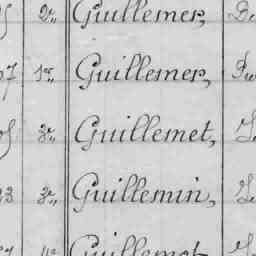 2e, Guillemer,
7 1re, Guillemer,
3e, Guillemet,
3 3e, Guillemin,
Guillemot